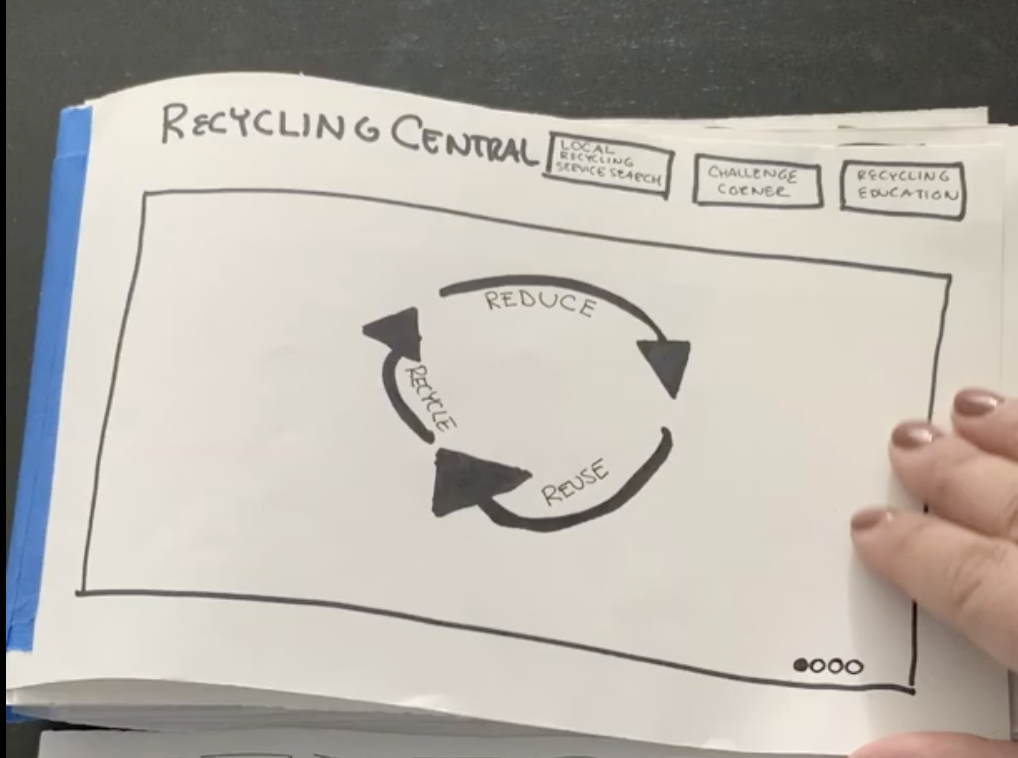 RECYCLING CENTRAL
LOCAL
RECYCLING
SERVICE SEARCH
CHALLENGE
CORNER
RECYCLING
EDUCATION
REDUCE
RECYCLE
REUSE